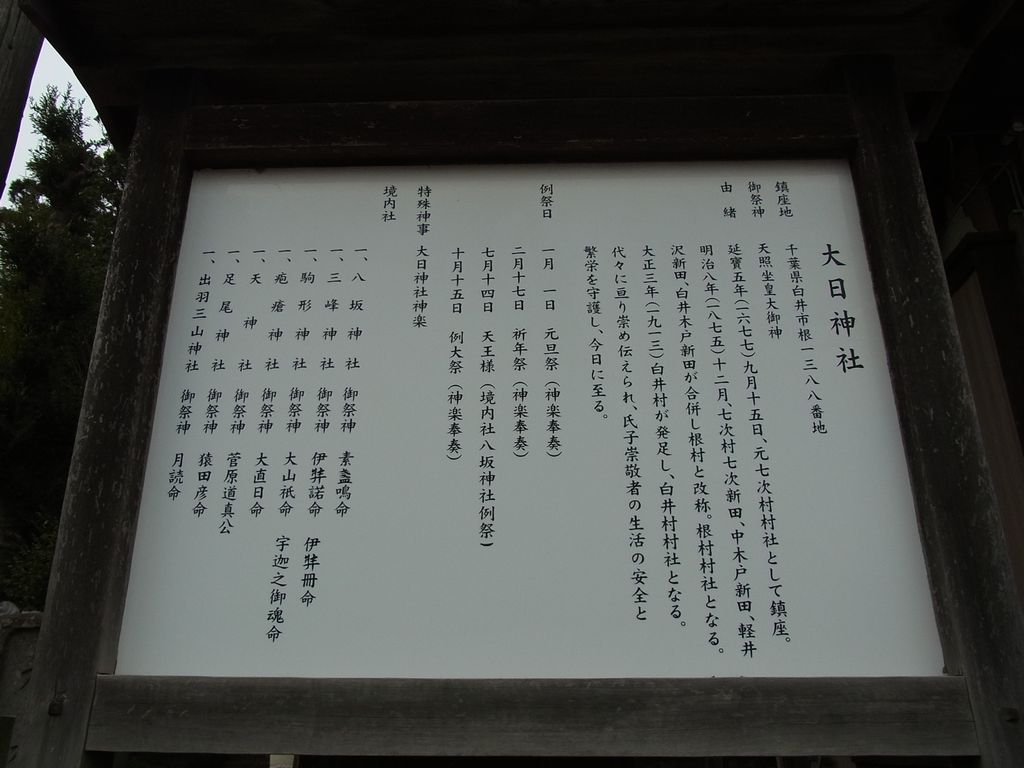 大日神社
鎮座地 千葉県白井市根一三八八番地
御祭神 天照坐皇大御神
由緒 延寶五年(一六七七)九月十五日、元七次村村社として鎮座。
明治八年(一八七五)十二月、七次村七次新田、中木戸新田、軽井
沢新田、白井木戸新田が合併し根村と改称。根村村社となる。
大正三年(一九一三)白井村が発足し、白井村村社となる。
代々に亘り崇め伝えられ、氏子崇敬者の生活の安全と
繁栄を守護し、今日に至る。
例祭日 一月 一日 元旦祭(神楽奉奏)
二月十七日 祈年祭(神楽奉奏)
七月十四日 天王様(境内社八坂神社例祭)
十月十五日 例大祭(神楽奉奏)
特殊神事 大日神社神楽
境内社
一、八坂神社 御祭神 素盞鳴命
一、三峰神社 御祭神 伊弉諾命 伊弉冊命
一、駒形神社 御祭神 大山祇命 宇迦之御魂命
一、疱瘡神社 御祭神 大直日命
一、天神社 御祭神 菅原道真公
一、足尾神社 御祭神 猿田彦命
一、出羽三山神社 御祭神 月読命